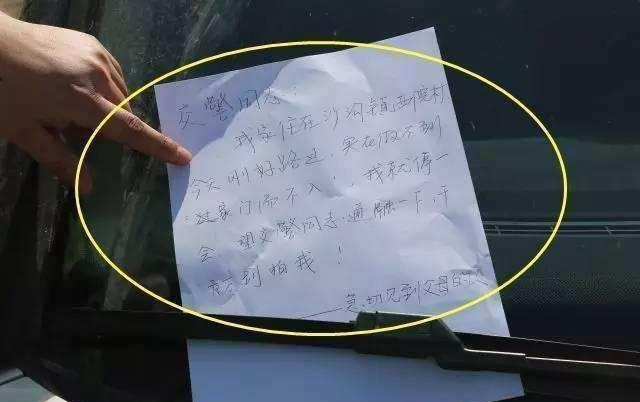 交警同志：
我家住在沙沟镇西窪村
今天刚好路过，实在做不到
过家门而不入，我就停一
会，望交警同志通融一下，千
万别拍我！
——急切见到父母的